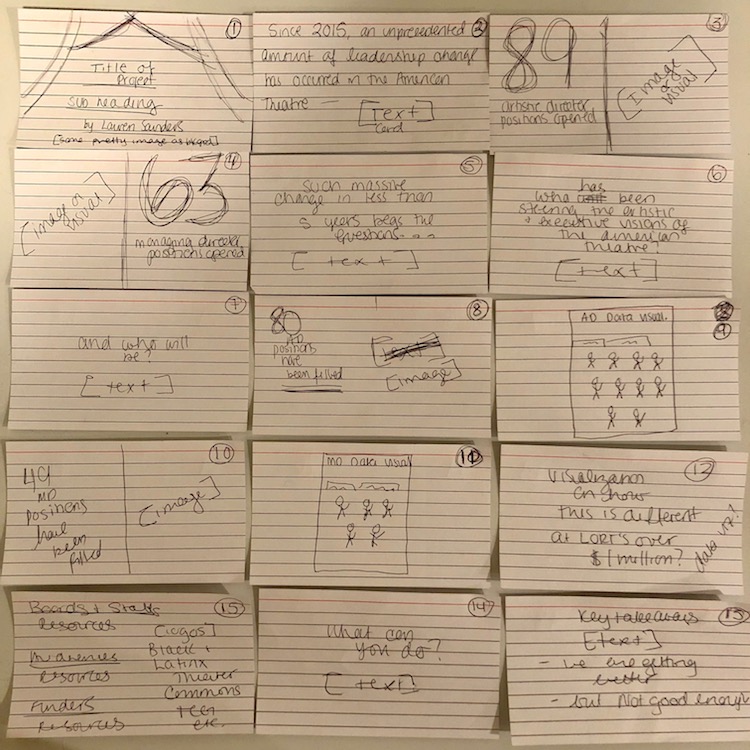 1
Title of
Project
Sub heading
by Lauren Saunders
2
Since 2015, an unprecedented
amount of leadership change
has occurred in the American
Theatre —
[Text]
Card
3
89
artistic director
positions opened
[Image or
visual]
4
[image or
visual]
63
managing director
positions opened
5
Such massive
change in less than
5 years begs the
questions...
[text]
6
who has been
steering the artistic
+ executive visions of
the american
theatre?
[text]
7
and who will
be?
[text]
8
80
AD
positions
have
been filled
[image]
9
AD Data visual.
10
49
MD
positions
have
been
filled
[image]
11
MD Data visual
12
Visualization
on how
this is different
at LORT's over
$1 million?
data viz?
15
Boards + Staffs
resources
Audiences
resources
Funders
resources
[logos]
Black +
Latinx
Theater
Commons
TCG
etc.
14
What can
you do?
[text]
13
Key takeaways
[text]
- we are getting
better
- but Not good enough